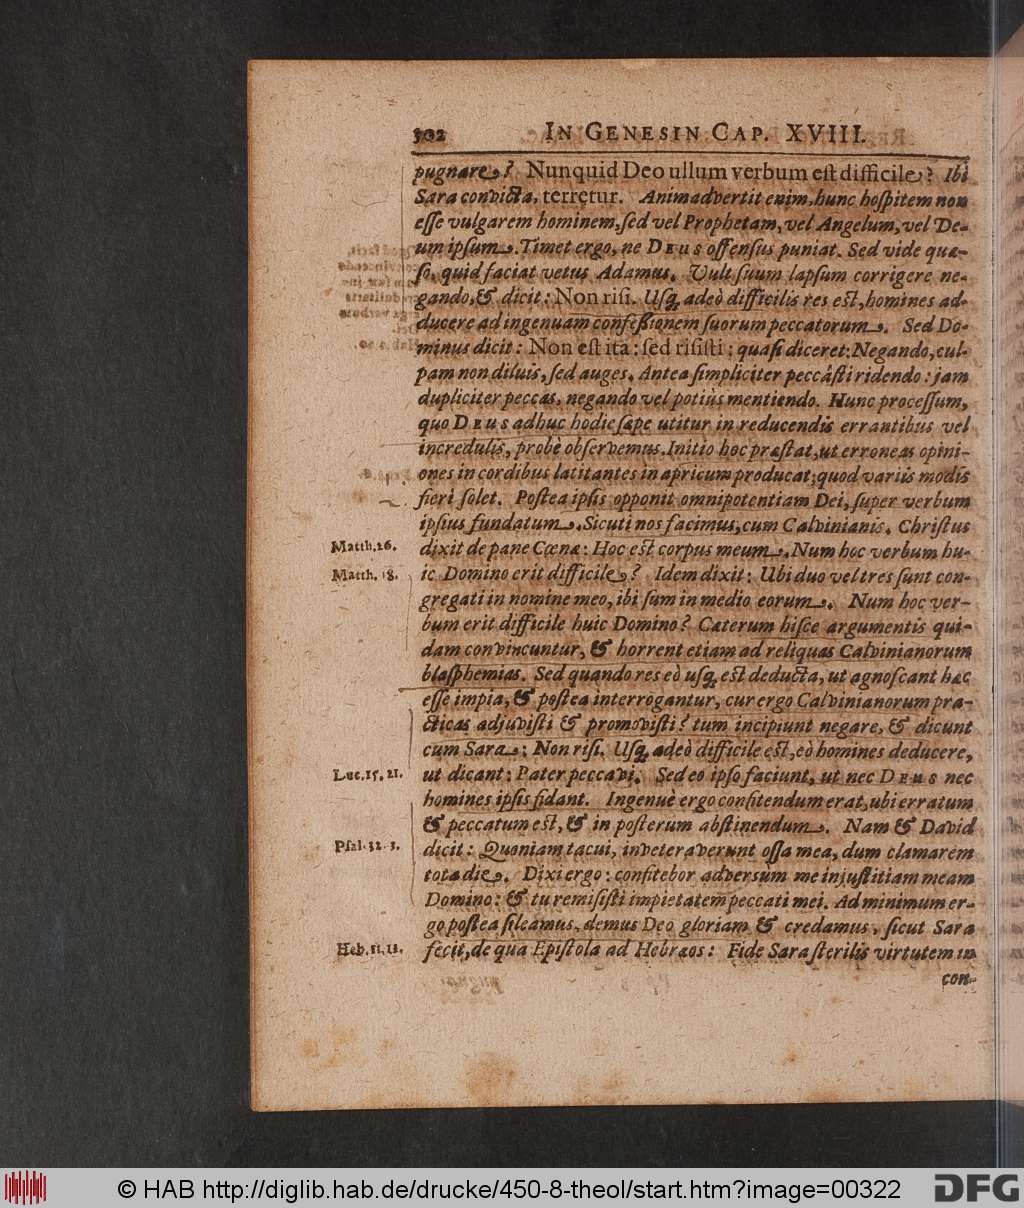 302 IN GENESIN CAP. XVIII.
pugnare? Nunquid Deo ullum verbum est difficile? Ibi
Sara convicta, terretur. Animadvertit enim, hunc hospitem non
esse vulgarem hominem, sed vel Prophetam, vel Angelum, vel De-
um ipsum. Timet ergo, ne DEUS offensus puniat. Sed vide quæ-
so, quid faciat vetus Adamus. Vult suum lapsum corrigere ne-
gando, & dicit: Non risi. Usq; adeò difficilis res est, homines ad-
ducere ad ingenuam confessionem suorum peccatorum. Sed Do-
minus dicit: Non est ita: sed risisti; quasi diceret: Negando, cul-
pam non diluis, sed auges. Antea simpliciter peccâsti ridendo: jam
dupliciter peccas, negando vel potiùs mentiendo. Hunc processum,
quo DEUS adhuc hodie sæpe utitur in reducendis errantibus vel
incredulis, probè observemus. Initiò hoc præstat, ut erroneas opini-
ones in cordibus latitantes in apricum producat; quod variis modis
fieri solet. Postea ipsis opponit omnipotentiam Dei, super verbum
ipsius fundatum. Sicuti nos facimus, cum Calvinianis. Christus
Matth. 26. dixit de pane Cœnæ: Hoc est corpus meum. Num hoc verbum hu-
Matth. 18. ic Domino erit difficile? Idem dixit: Ubi duo vel tres sunt con-
gregati in nomine meo, ibi sum in medio eorum. Num hoc ver-
bum erit difficile huic Domino? Cæterum hisce argumentis qui-
dam convincuntur, & horrent etiam ad reliquas Calvinianorum
blasphemias. Sed quando res eò usq; est deducta, ut agnoscant hæc
esse impia, & postea interrogantur, cur ergo Calvinianorum pra-
cticas adjuvisti & promovisti? tum incipiunt negare, & dicunt
cum Sara: Non risi. Usq; adeò difficile est, eò homines deducere,
Luc. 15, 21. ut dicant: Pater peccavi. Sed eo ipso faciunt, ut nec DEUS nec
homines ipsis fidant. Ingenuè ergo confitendum erat, ubi erratum
& peccatum est, & in posterum abstinendum. Nam & David
Psal. 32. 3. dicit: Quoniam tacui, inveteraverunt ossa mea, dum clamarem
tota die. Dixi ergo: confitebor adversum me injustitiam meam
Domino: & tu remisisti impietatem peccati mei. Ad minimum er-
go postea sileamus, demus Deo gloriam & credamus, sicut Sara
Heb. 11. 11. fecit, de qua Epistola ad Hebræos: Fide Sara sterilis virtutem in
con-
© HAB http://diglib.hab.de/drucke/450-8-theol/start.htm?image=00322
DFG